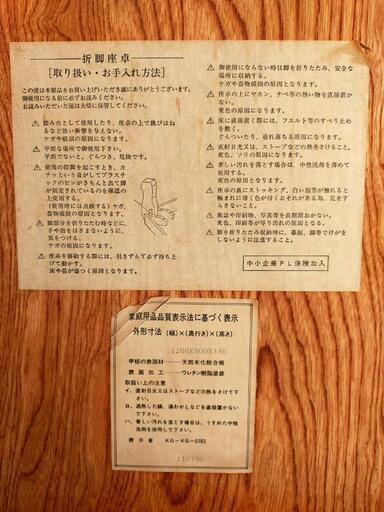 折脚座卓
[取り扱い・お手入れ方法]
この度は本製品をお買い上げいただき誠にありがとうございます。
御使用になる前に必ずお読みください。
お読みいただいた後は大切に保管してください。
⚠踏み台として使用したり、座卓の上で跳びはね
るなど強い衝撃を与えない。
ケガや破損の原因となります。
⚠平坦な場所で御使用下さい。
平坦でないと、ぐらつき、危険です。
⚠使用の際脚を起こすとき、カ
チャッという音がしてプラスチ
ックのピンがきちんと出て脚
が固定されているのを確認の
上使用する。
(使用時には点検する)ケガ、
器物破損の原因となります。
⚠脚部分を折りたたむ時などに、
手や指をはさまないように、
気をつける。
ケガの原因になります。
⚠座卓を移動する際には、引きずらず必ず持ち上
げて動かす。
床や畳が傷つく原因となります。
⚠御使用にならない時は脚を折りたたみ、安全な
場所に収納する。
ケガや器物破損の原因となります。
⚠座卓の上にヤカン、ナベ等の熱い物を直接置か
ない。
変色の原因になります。
⚠床に直接置く際には、フエルト等のすべり止め
を敷く。
ぐらついたり、崩れ落ちる原因になります。
⚠直射日光又は、ストーブなどの熱をさけること。
変色、ソリの原因になります。
⚠著しい汚れを落とす場合は、中性洗剤を薄めて
使用する。
変色の原因となります。
⚠座卓の裏にストッキング、白い服等が触れると
極まれに薄く色が付くおそれがある為、足をす
らさないこと。
⚠雑誌や印刷物、写真等を長期間おかない。
変色、印刷等が写り汚れの原因となります。
⚠脚を折りたたみ収納時に、幕板、脚等でけがを
しないように注意すること。
中小企業PL保険加入
家庭用品品質表示法に基づく表示
外形寸法(幅)×(奥行き)×(高さ)
1200X900X330
甲板の表面材……天然木化粧合板
表面加工……ウレタン樹脂塗装
取扱い上の注意
イ、直射日光又はストーブなどの熱をさけて下
さい。
ロ、過熱した鍋、湯わかしなどを直接置かない
で下さい。
ハ、著しい汚れを落とす場合は、うすめた中性
洗剤を使用して下さい。
表示者 KG-KG-0163
110330